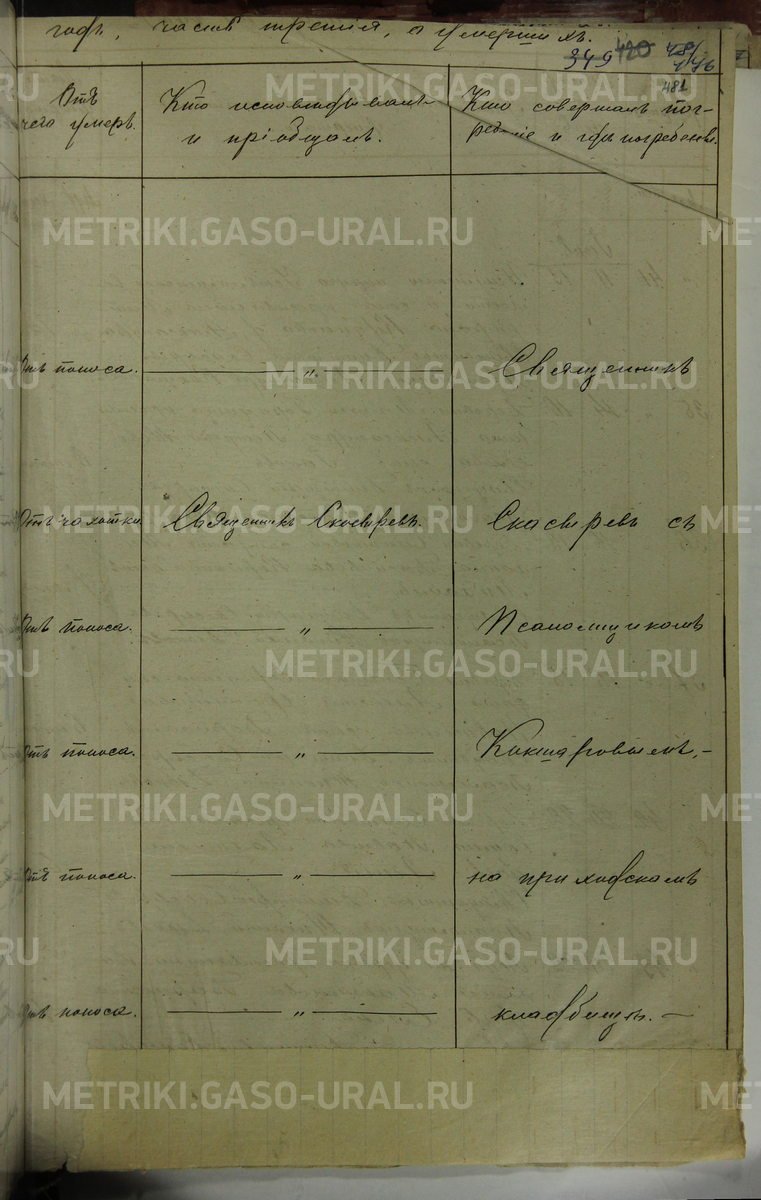 годъ, часть третія, о умершихъ.
349 420 481/476
481
Отъ
чего умеръ.
Кто исповѣдывалъ
и пріобщалъ.
Кто совершалъ пог-
ребеніе и гдѣ погребены.
Отъ поноса. — „ — Священникъ
Отъ чахотки Священникъ Скосыревъ. Скосыревъ съ
Отъ поноса. — „ — Псаломщикомъ
Отъ поноса. — „ — Кокшаровымъ, —
Отъ поноса. — „ — на приходскомъ
Отъ поноса. — „ — кладбищѣ. —
METRIKI.GASO-URAL.RU